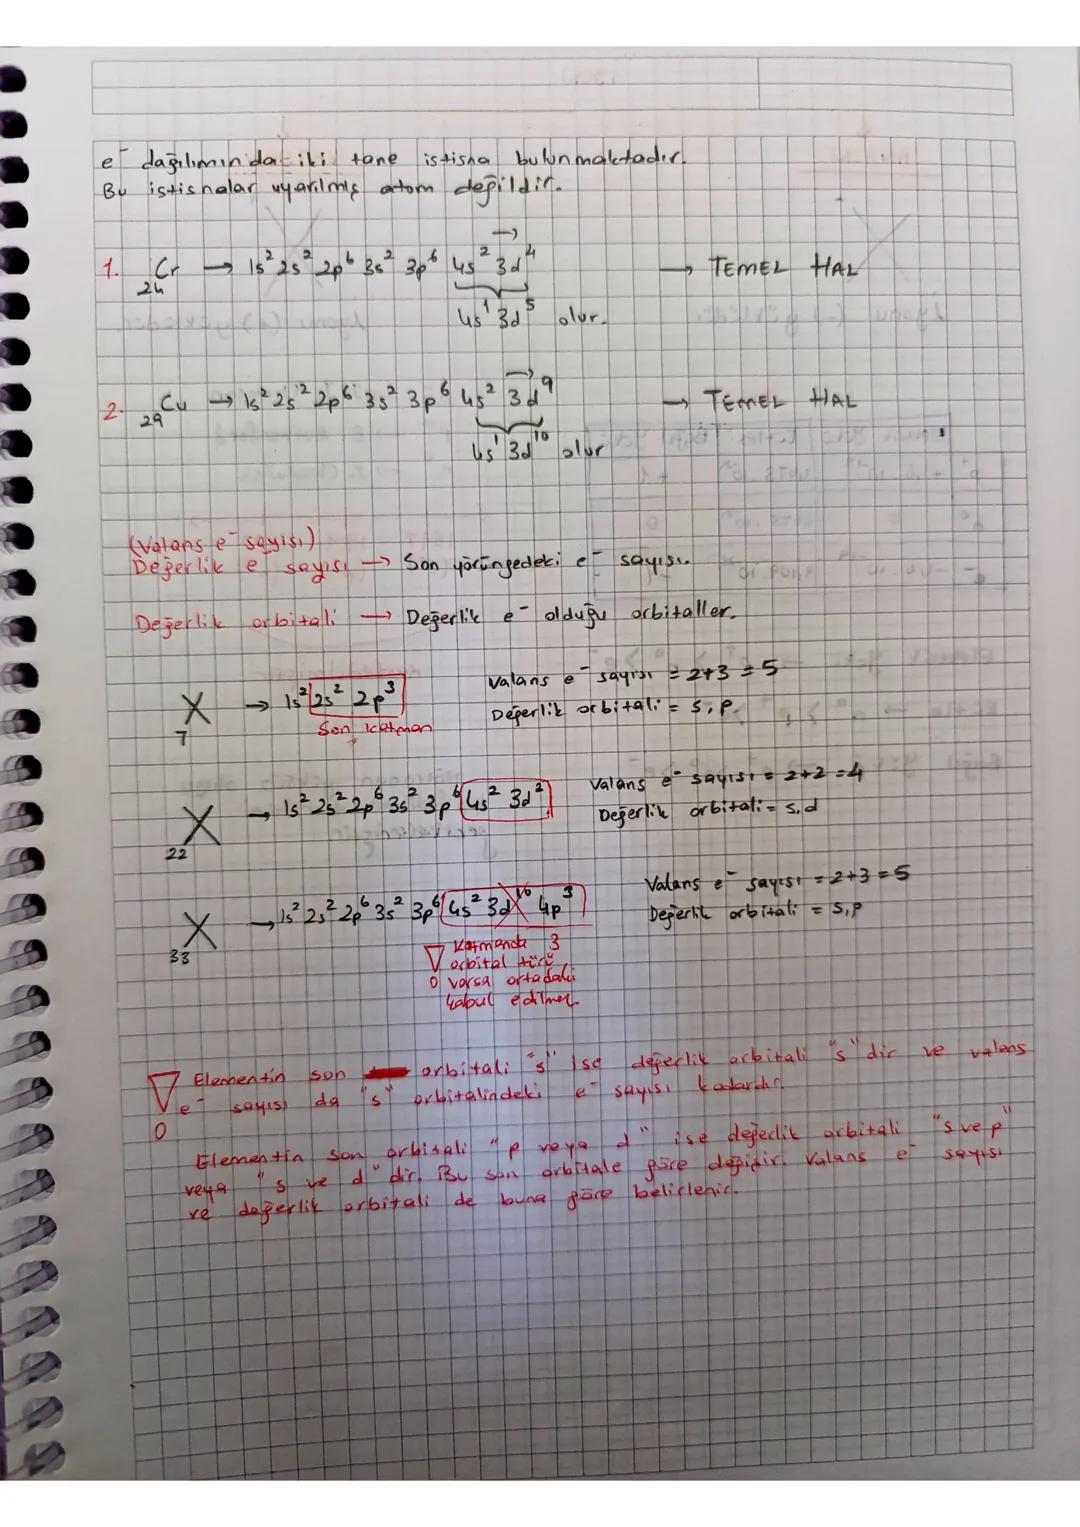 e⁻ dağılımında iki tane istisna bulunmaktadır.
Bu istisnalar uyarılmış atom değildir.
1. ₂₄Cr → 1s² 2s² 2p⁶ 3s² 3p⁶ 4s² 3d⁴ → TEMEL HAL
4s¹ 3d⁵ olur.
2. ₂₉Cu → 1s² 2s² 2p⁶ 3s² 3p⁶ 4s² 3d⁹ → TEMEL HAL
4s¹ 3d¹⁰ olur
(Valans e⁻ sayısı)
Değerlik e⁻ sayısı → Son yörüngedeki e⁻ sayısı.
Değerlik orbitali → Değerlik e⁻ olduğu orbitaller.
₇X → 1s² 2s² 2p³ Valans e⁻ sayısı = 2+3 = 5
Son katman Değerlik orbitali = s, p
₂₂X → 1s² 2s² 2p⁶ 3s² 3p⁶ 4s² 3d² Valans e⁻ sayısı = 2+2 = 4
Değerlik orbitali = s, d
₃₃X → 1s² 2s² 2p⁶ 3s² 3p⁶ 4s² 3d¹⁰ 4p³ Valans e⁻ sayısı = 2+3 = 5
Değerlik orbitali = s, p
Katmanda 3
orbital türü
varsa ortadaki
kabul edilmez.
Elementin son orbitali "s" ise değerlik orbitali "s" dir ve valans
e⁻ sayısı da "s" orbitalindeki e⁻ sayısı kadardır.
Elementin son orbitali "p veya d" ise değerlik orbitali "s ve p"
veya "s ve d" dir. Bu son orbitale göre değişir. Valans e⁻ sayısı
ve değerlik orbitali de buna göre belirlenir.